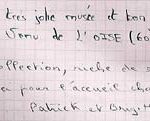 très jolie musée et bon
Venu de L'OISE (60
ollection, riche de s
pour l'accueil cha
Patrick et Brigit